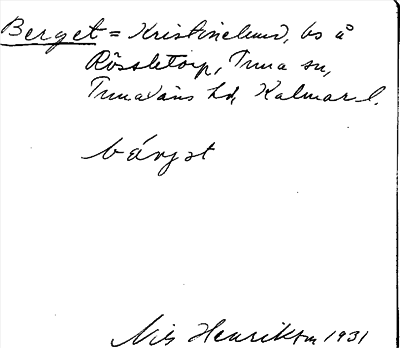 Berget = Kristinelund, bs å
Rössletorp, Tuna sn,
Tunaläns hd, Kalmar l.
bárjət
Nils Henrikson 1931